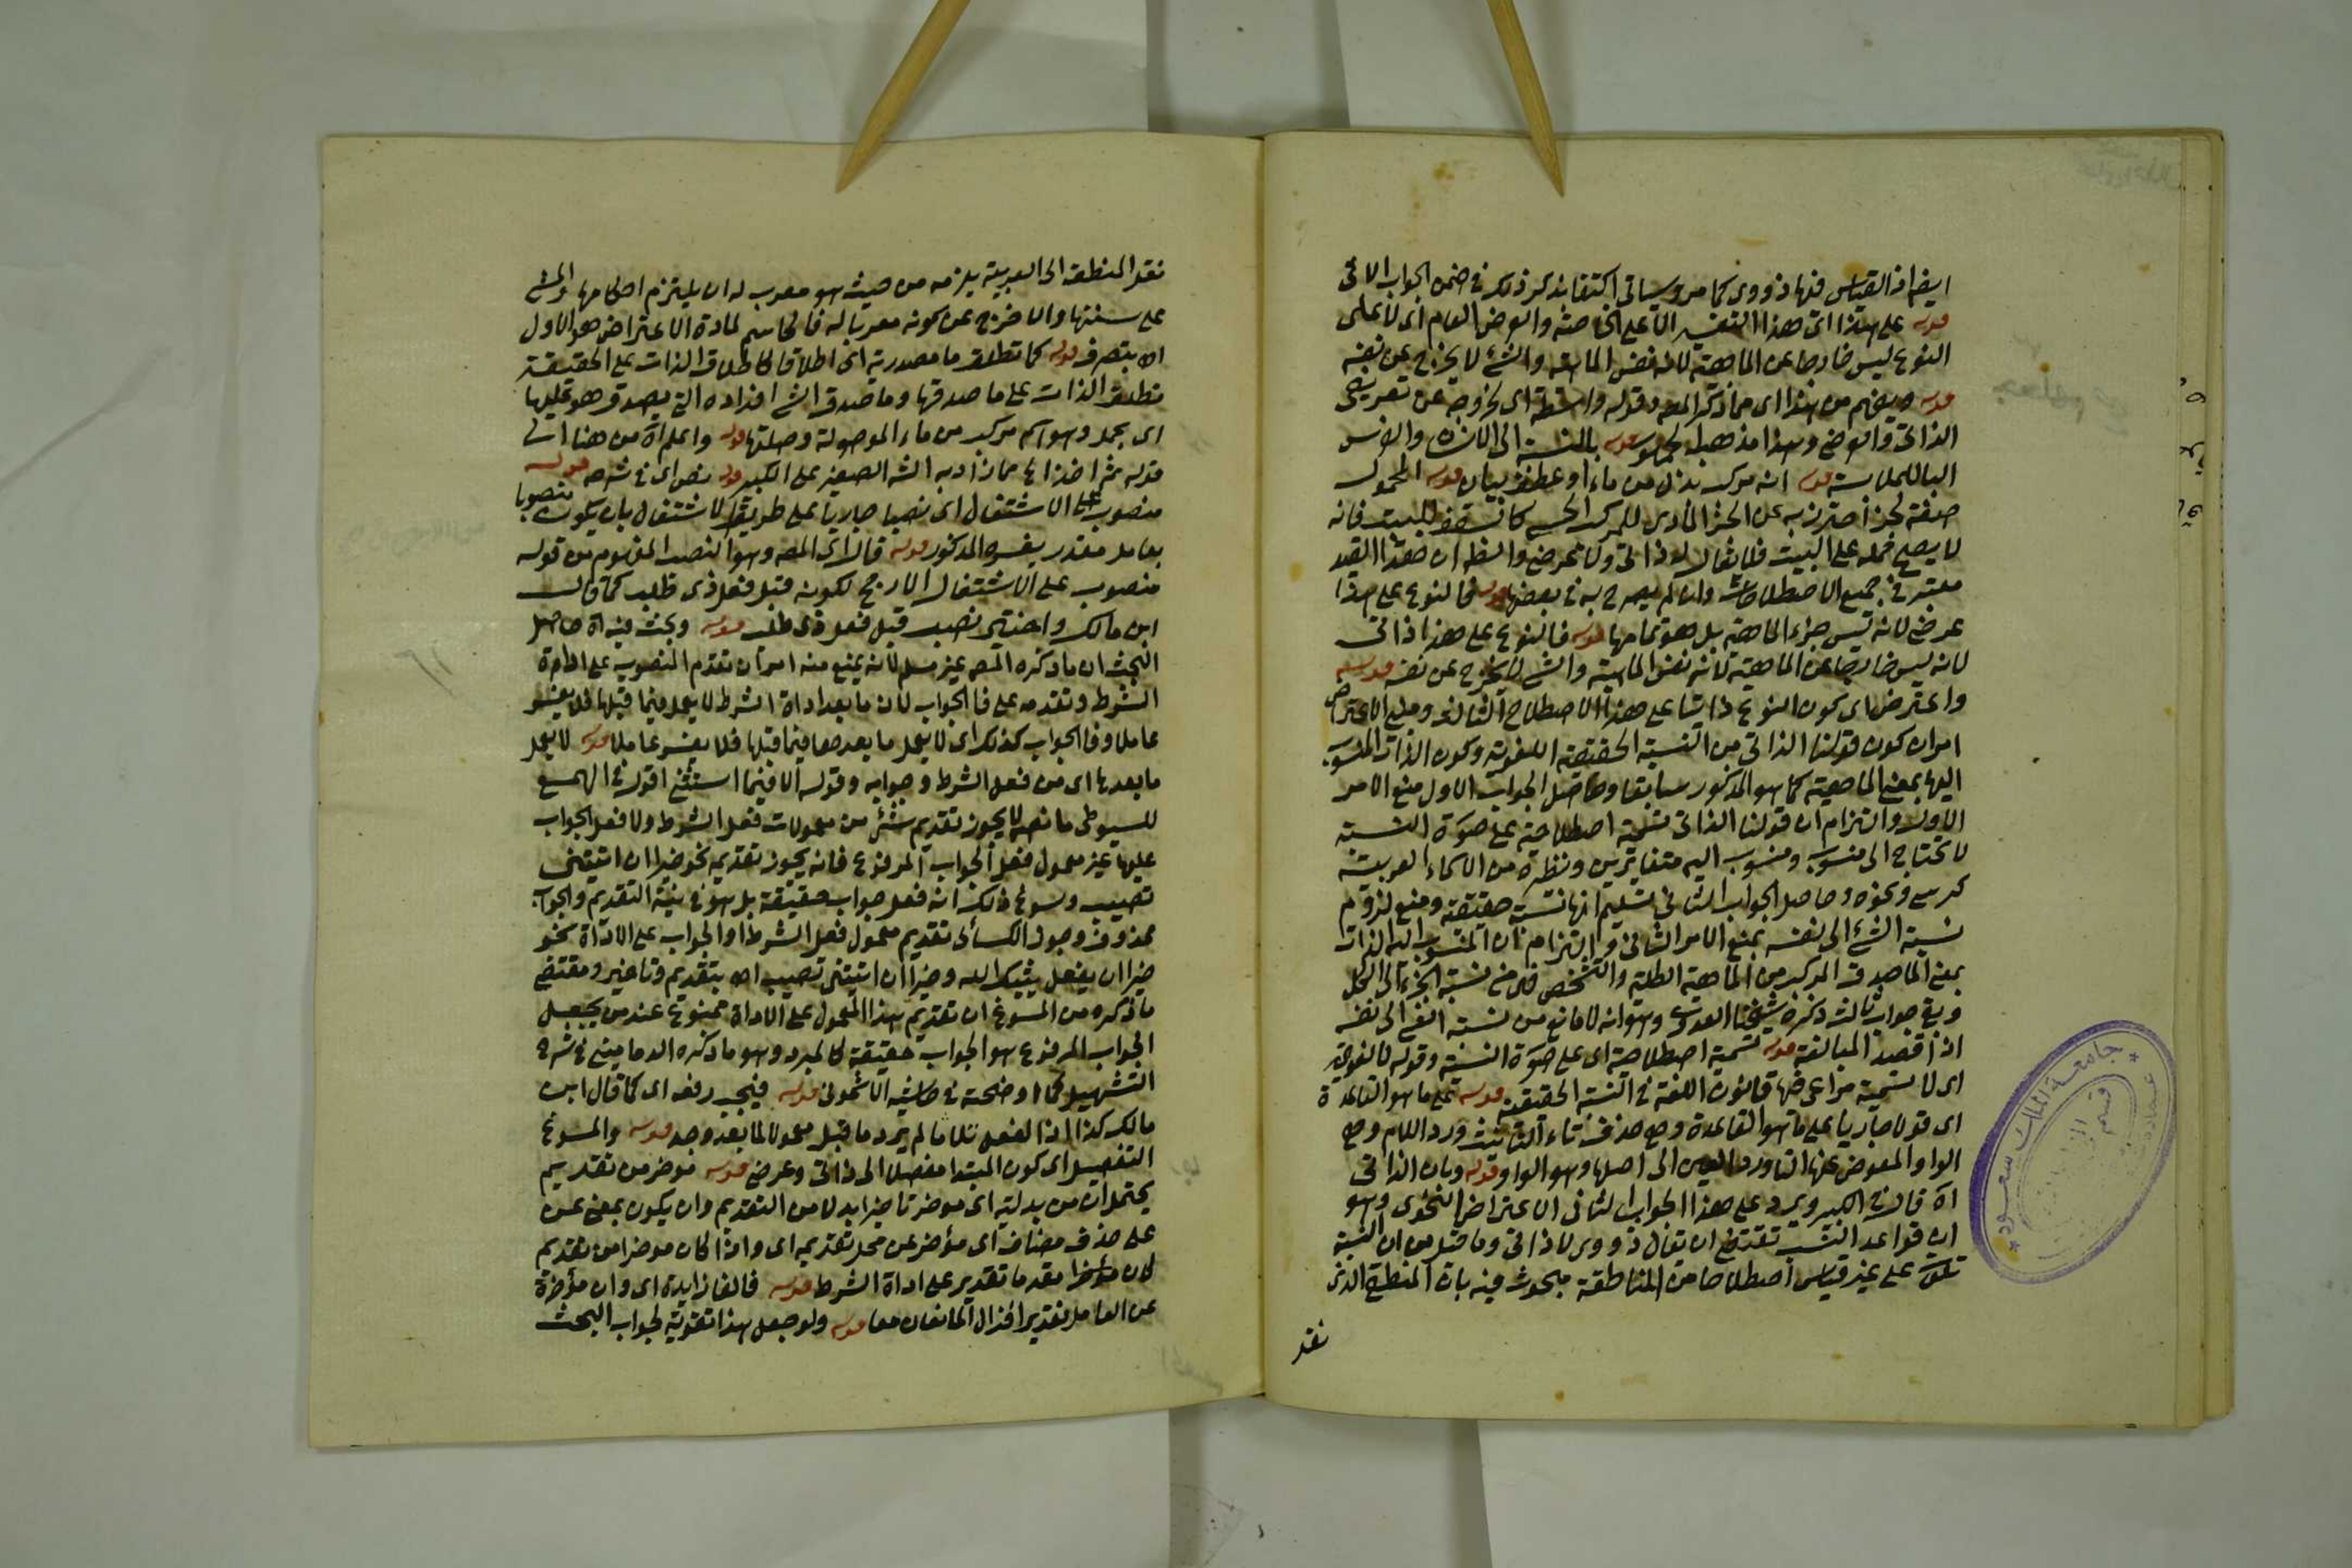 ايضا اذ القياس فيها ذووى كما مر وسياتى اكتفا بذكر ذلك فى ضمن الجواب الاتى
قوله على هذا اى هذا التفسير الا على الخاصة والعرض العام اى لا على
النوع ليس خارجا عن الماهية لانه نفس الماهية والشئ لا يخرج عن نفسه
قوله ويفهم من هذا اى مما ذكر المص وقوله واسطة اى لخروجه عن تعريفى
الذاتى والعرضى وهذا مذهب قوله بالنسبة الى الانسان والفرس
قوله انه مركب بدل من ماء او عطف بيان قوله المحمول
صفة لجزء احترز به عن الجزء المادى للمركب الحسى كالسقف للبيت فانه
لا يصح حمله على البيت فلا يقال له ذاتى ولا عرضى والظ ان هذا القيد
معتبر فى جميع الاصطلاحات وان لم يصرح به فى بعضها قوله فالنوع على هذا
عرضى لانه ليس جزء الماهية بل هو تمامها قوله فالنوع على هذا ذاتى
لانه ليس خارجا عن الماهية لانه نفس الماهية والشئ لا يخرج عن نفسه قوله
واعترض اى كون النوع ذاتيا على هذا الاصطلاح الثالث ومبنى الاعتراض
امران كون قولنا الذاتى من النسبة الحقيقية اللغوية وكون الذات المنسوب
اليها بمعنى الماهية كما هو المذكور سابقا وحاصل الجواب الاول منع الامر
الاول والتزام ان قولنا الذاتى تسمية اصطلاحية على صورة النسبة
لا تحتاج الى منسوب ومنسوب اليه متغايرين ونظيره من الاسماء العربية
كرسى ونحوه وحاصل الجواب الثانى تسليم انها نسبة حقيقية ومنع لزوم
نسبة الشئ الى نفسه بمنع الامر الثانى والتزام ان المنسوب اليه الذات
بمعنى الماصدق المركب من الماهية الكلية والتشخص فهى من نسبة الجزء الى الكل
وبقى جواب ثالث ذكره شيخنا العدوى وهو انه لا مانع من نسبة الشئ الى نفسه
اذا قصد المبالغة قوله تسمية اصطلاحية اى على صورة النسبة وقوله لا لغوية
اى لا تسمية مراعى فيها قانون اللغة فى النسبة الحقيقية قوله على ما هو القاعدة
اى قولا جاريا على ما هو القاعدة وهى حذف تاء التأنيث ورد اللام وهى
الواو المعوض عنها التا ورد العين الى اصلها وهو الواو قوله وبان الذاتى
اه قال فى الكبير ويرد على هذا الجواب الثانى الاعتراض النحوى وهو
ان قواعد النسب تقتضى ان تقال ذووى لا ذاتى وما قيل من ان النسبة
تلك على غير قياس اصطلاحا من المناطقة مبحوث فيه بان المنطقى الذى
نقد
نقل المنطقة الى العربية يلزمه من حيث هو معرب له ان يلتزم احكامها والمشى
على سننها والا خرج عن كونه معربا له فالحاسم لمادة الاعتراض هو الاول
اه بتصرف قوله كما تطلق ما مصدرية اى اطلاقا كاطلاق الذات على الحقيقة
تطلق الذات على ما صدقها وما صدق الشئ افراده التى يصدق هو عليها
اى يحمل وهو اسم مركب من ماء الموصولة وصلتها قوله واعلم اه من هنا الى
قوله ثم اخذ فى مما زاد به الشر الصغير على الكبير قوله نص اى فى شرحه قوله
منصوب على الاشتغال اى نصبا جاريا على طريق الاشتغال بان يكون منصوبا
بعامل مقدر يفسره المذكور قوله قال اى المص وهو النصب المفهوم من قوله
منصوب على الاشتغال الارجح لكونه قبل فعل ذى طلب كما قال
ابن مالك واختير نصب قبل فعل ذى طلب قوله وبحث فيه اه حاصل
البحث ان ما ذكره المص غير مسلم لانه يمنع منه امران تقدم المنصوب على اداة
الشرط وتقدمه على فا الجواب لان ما بعد اداة الشرط لا يعمل فيما قبلها فلا يفسر
عاملا وفا الجواب كذلك اى لا يعمل ما بعدها فيما قبلها فلا يفسر عاملا قوله لا يعمل
ما بعدها اى من فعل الشرط وجوابه وقوله الا فيما استثنى اقول فى الهمع
للسيوطى ما نصه لا يجوز تقديم شئ من معمولات فعل الشرط ولا فعل الجواب
عليها غير معمول فعل الجواب المرفوع فانه يجوز تقديمه نحو خيرا ان اتيتنى
تصيب وسوغ ذلك انه فعل جواب حقيقة بل هو فى نية التقديم والجواب
محذوف وجوز الكسائى تقديم معمول فعل الشرط او الجواب على الاداة نحو
خيرا ان يفعل يثيبك الله وخيرا ان اتيتنى تصيب اه بتقديم وتاخير ومقتضى
ما ذكره من المسوغ ان تقديم هذا المعمول على الاداة ممنوع عند من يجعل
الجواب المرفوع هو الجواب حقيقة كالمبرد وهو ما ذكره الدمامينى فى شرح
التسهيل كما اوضحته فى حاشية الاشمونى قوله فيجب رفعه اى كما قال ابن
مالك كذا اذا الفعل تلا ما لم يرد ما قبل معمولا لما بعد وجد قوله والمسوغ
التفصيل اى كون المبتدا مفصلا الى ذاتى وعرضى قوله موخر من تقديم
يحتمل ان من بدلية اى موخر تاخيرا بدلا من التقديم وان يكون بمعنى عن
على حذف مضاف اى مؤخر عن محل تقديمه اى واذا كان موخرا من تقديم
كان موخرا مقدما تقدير على اداة الشرط قوله فالفا زايدة اى وان مؤخرة
عن العامل تقديرا فزال المانعان معا قوله ولو جعل هذا تقوية لجواب البحث
جامعة الملك سعود
قسم